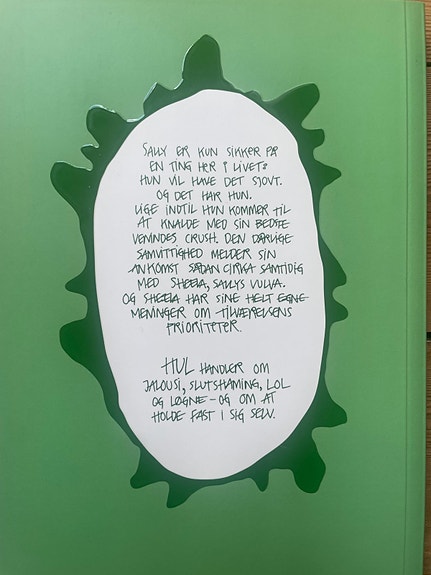 SALLY ER KUN SIKKER PÅ
EN TING HER I LIVET:
HUN VIL HAVE DET SJOVT.
OG DET HAR HUN.
LIGE INDTIL HUN KOMMER TIL
AT KNALDE MED SIN BEDSTE
VENINDES CRUSH. DEN DÅRLIGE
SAMVITTIGHED MELDER SIN
ANKOMST SÅDAN CIRKA SAMTIDIG
MED SHEELA, SALLYS VULVA.
OG SHEELA HAR SINE HELT EGNE
MENINGER OM TILVÆRELSENS
PRIORITETER.
HUL HANDLER OM
JALOUSI, SLUTSHAMING, LOL
OG LØGNE – OG OM AT
HOLDE FAST I SIG SELV.